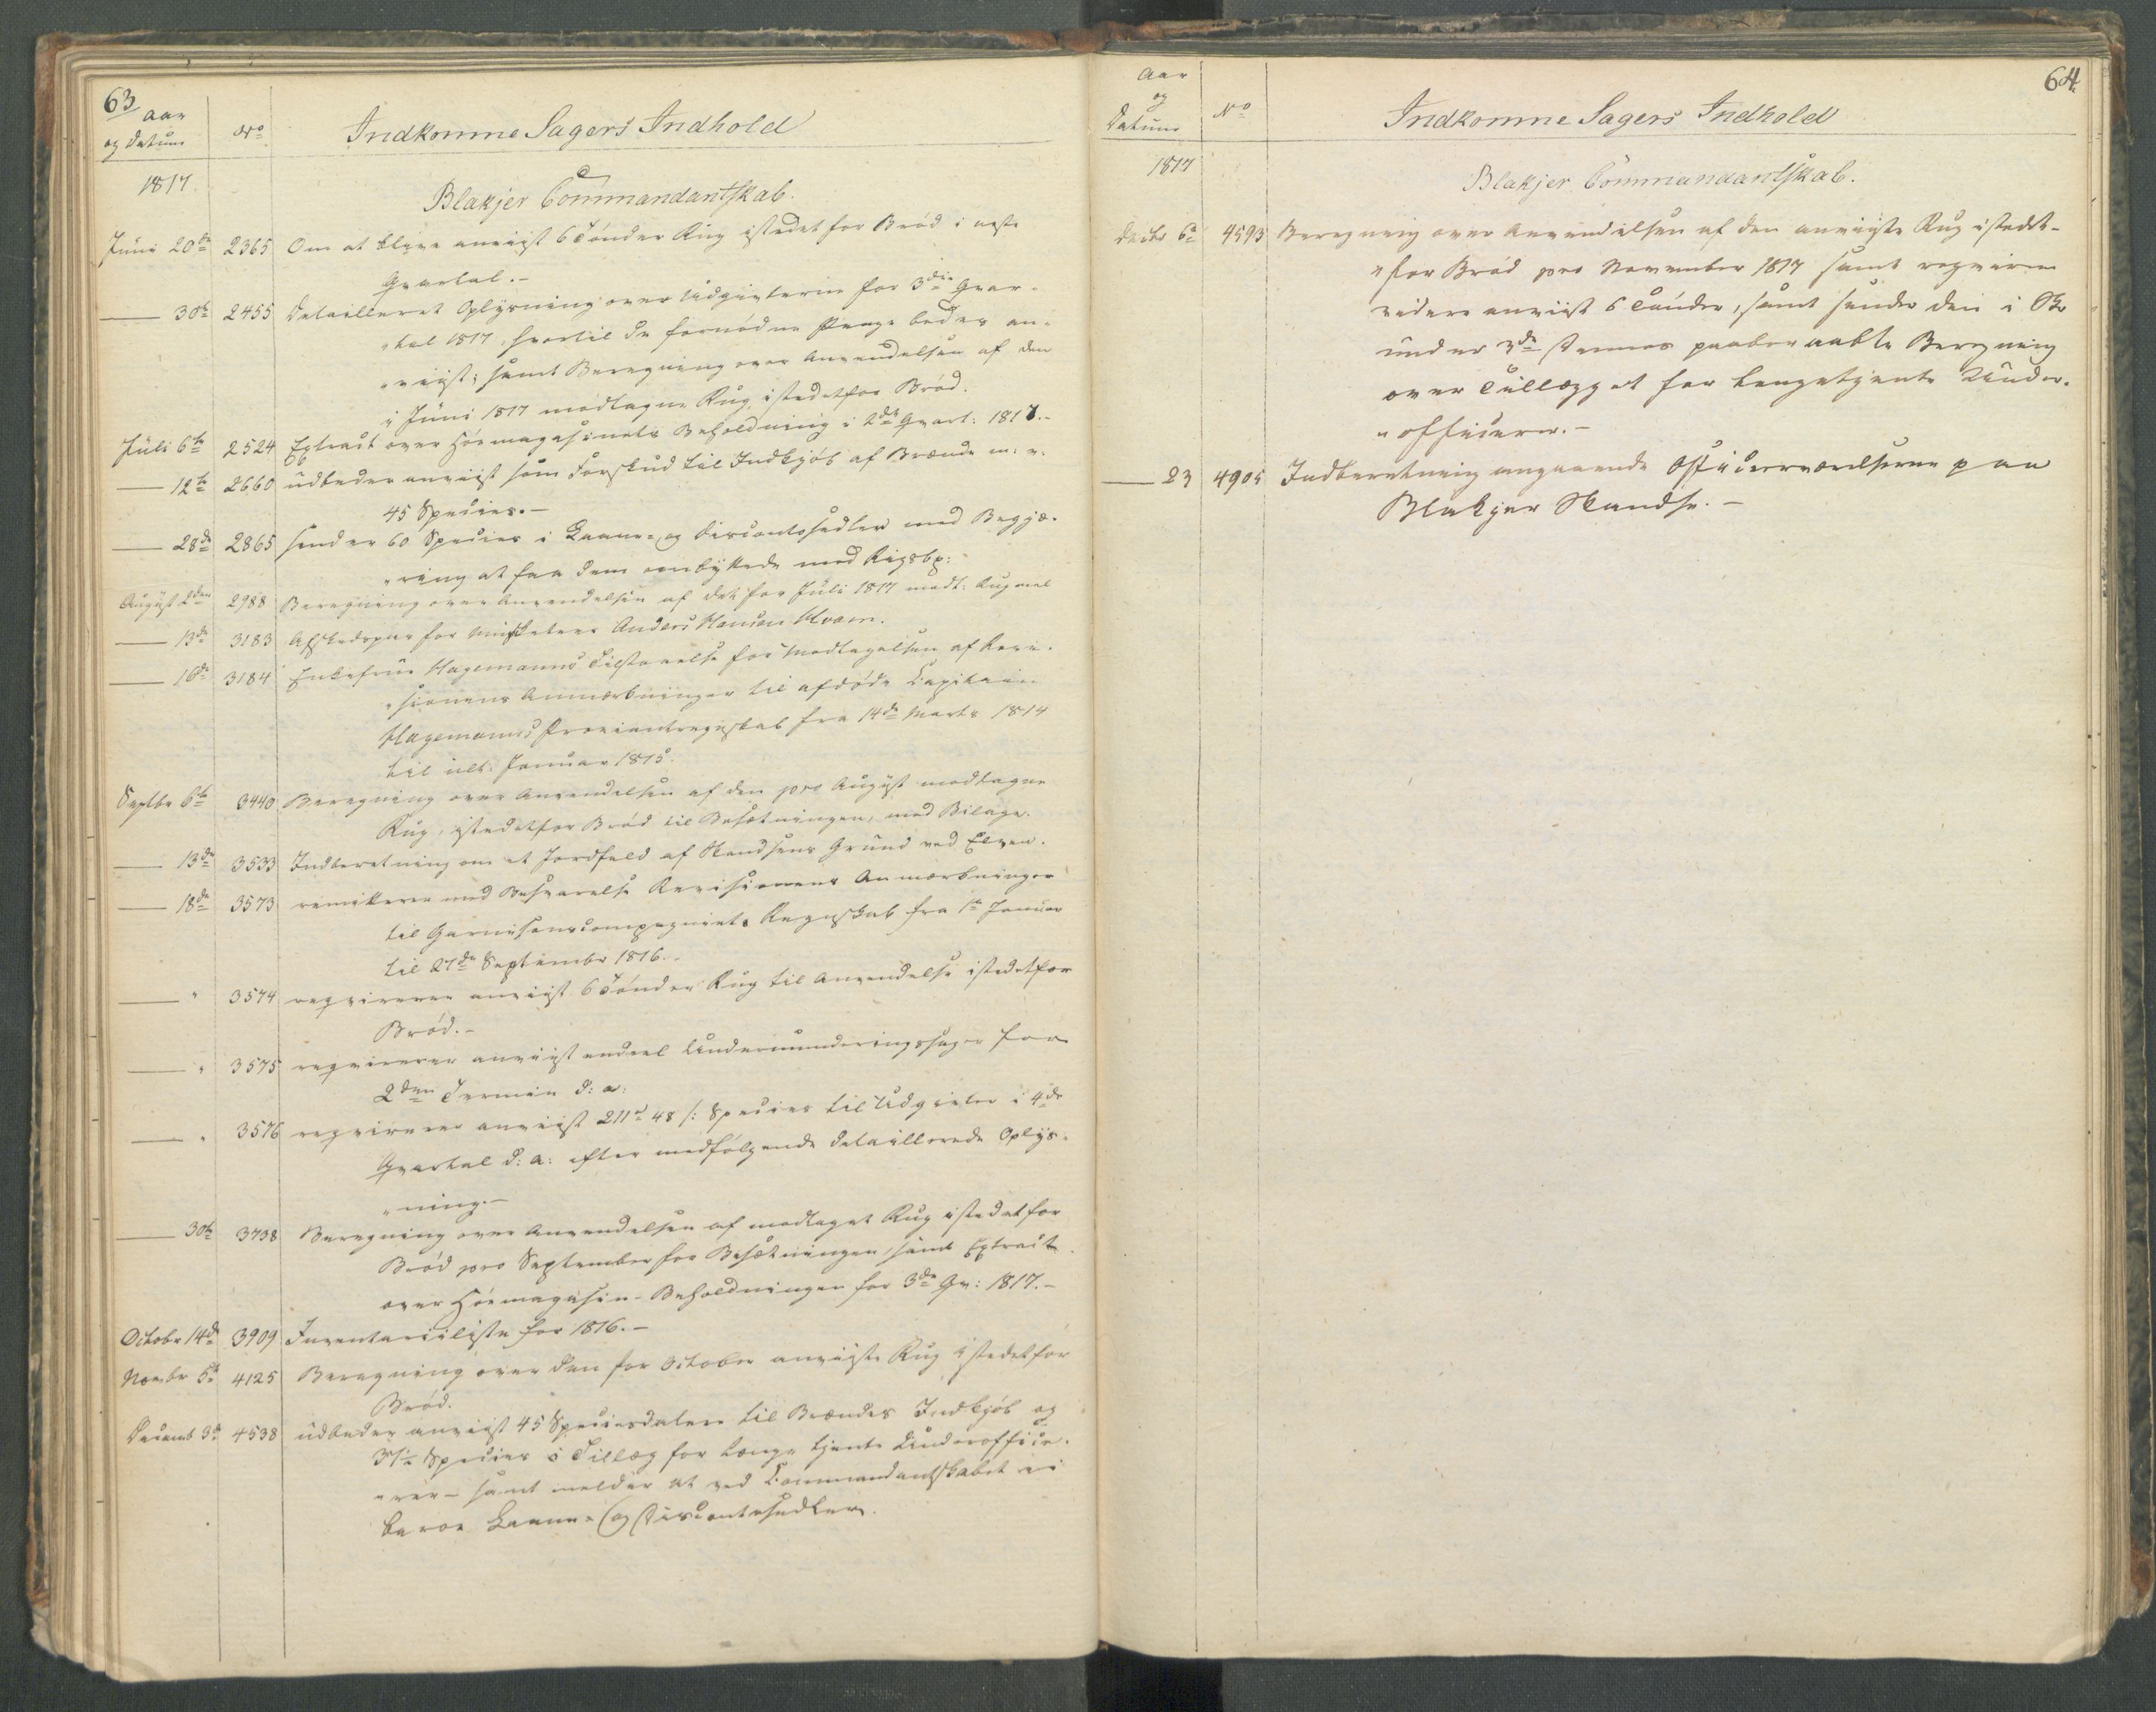 63
Aar
og Datum
No
Indkomne Sagers Indhold
1817
Blakjer Commandantskab.
Juni 20de 2365 Om at blive anviist 6 Tønder Rug istedet for Brød i neste
Qvartal.-
— 30te 2455 Detailleret Oplysning over Udgivterne for 3die Qvar-
"tal 1817, hvortil de fornødne Penge bedes an-
"viist; samt Beregning over Anvendelsen af den
i Juni 1817 modtagne Rug, istedetfor Brød.
Juli 6te 2524 Extract over Höemagasinets Beholdning i 2det Qvart: 1817.-
— 12te 2660 udbeder anviist som Forskud til Indkjöb af Brænde m: v:
45 Species.-
— 28de 2865 sender 60 Species i Laane- og Discontosedler med Begjæ-
"ring at faa dem ombyttede med Rigsbp:
August 2den 2988 Beregning over Anvendelsen af det for Juli 1817 modt: Rugmel
— 13de 3183 Afskedspas for Musketeer Anders Hansen Moen.
— 16de 3184 Enkefrue Hagemanns Tilstaaelse for Modtagelsen af Revi-
"sionens Anmærkninger til afdöde Capitain
Hagemanns Proviantregnskab fra 14de Marts 1814
til ult: Januar 1815.
Septbr 6te 3440 Beregning over Anvendelsen af den pro August modtagne
Rug, istedetfor Bröd til Besætningen, med Bilage.
— 13de 3533 Indberetning om et Jordfald af Skandsens Grund ved Elven.
— 18de 3573 remitterer med Besvarelse Revisionens Anmærkninger
til Garnisonscompagniets Regnskab fra 1te Januar
til 27de September 1816.-
— " 3574 reqvirerer anviist 6 Tönder Rug til Anvendelse istedetfor
Bröd.-
— " 3575 reqvirerer anviist endeel Undermunderingssager for
2den Termin d: a:
— " 3576 reqvirerer anviist 211 48 /: Species til Udgivter i 4de
Qvartal d: a: efter medfölgende detaillerede Oplys-
"ning.-
— 30te 3738 Beregning over Anvendelsen af modtaget Rug istedetfor
Bröd pro September for Besætningen, samt Extract
over Höemagasin-Beholdningen for 3de Qv: 1817.-
Octobr 14de 3909 Inventariiliste for 1816.-
Novbr 5te 4125 Beregning over den for October anviiste Rug istedetfor
Bröd.
Decemb 3de 4538 udbeder anviist 45 Speciesdaler til Brændes Indkjöb og
Species i Tillæg for længe tjente Underoffice-
"rer - samt melder at ved Commandantskabet ei
beroe Laane- og Discontosedler.
Aar
og
Datum
No
64
Indkomne Sagers Indhold
1817
Blakjer Commandantskab.
Decbr 6te 4593 Beregning over Anvendelsen af den anviiste Rug istedet-
"for Bröd pro November 1817 samt reqvirerer
videre anviist 6 Tönder, samt sender den i Skr
under 3de dennes paaberaabte Beregning
over Tillægget for lengetjente Under-
"officerer.-
— 23 4905 Indberetning angaaende Officeerværelserne paa
Blakjer Skandse.-